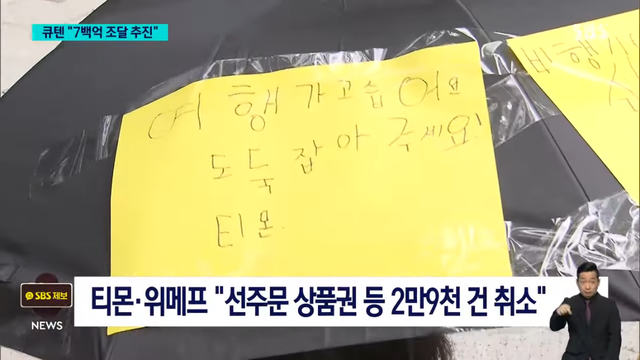 큐텐 "7백억 조달 추진"
SBS
여행가고습어요
도둑잡아주세요!
티몬.
비행
SBS 제보
NEWS
티몬·위메프 "선주문 상품권 등 2만9천 건 취소"